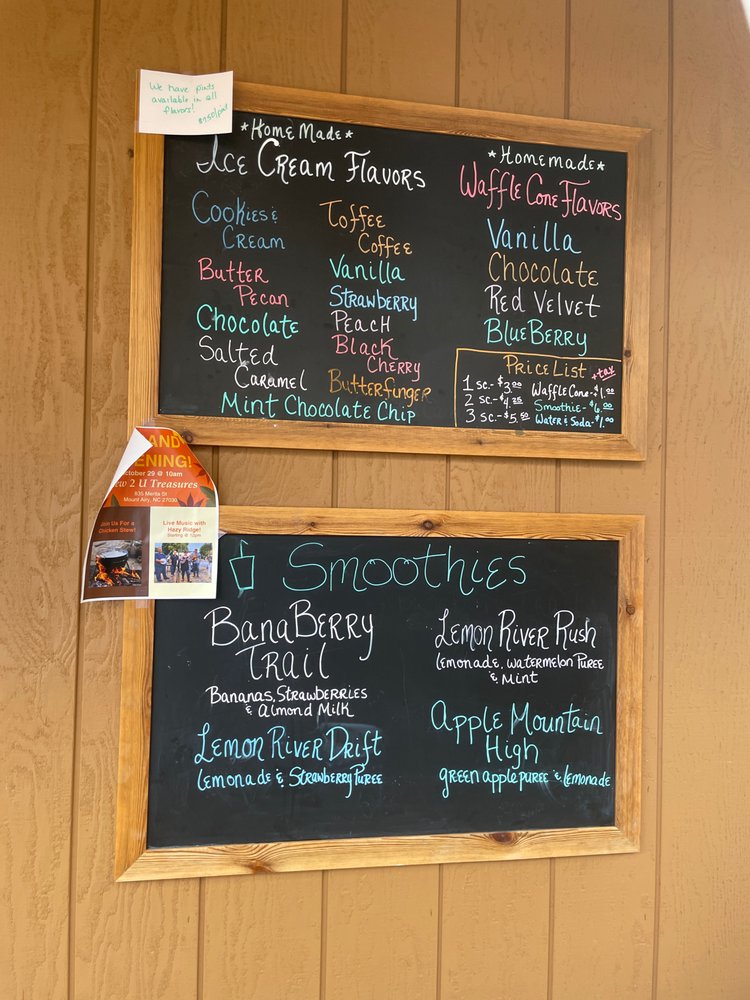 We have pints
available in all
flavors!
*Home Made*
Ice Cream Flavors
Cookies &
Cream
Butter
Pecan
Chocolate
Salted
Caramel
Toffee
Coffee
Vanilla
Strawberry
Peach
Black
Cherry
Butterfinger
Mint Chocolate Chip
*Homemade*
Waffle Cone Flavors
Vanilla
Chocolate
Red Velvet
BlueBerry
Price List + tax
1 sc.- $3.00
2 sc.- $4.25
3 sc.- $5.50
Waffle Cone- $1.00
Smoothie- $6.00
Water & Soda- $1.00
AND
ENING!
ctober 29 @ 10am
ew 2 U Treasures
835 Merita St
Mount Airy, NC 27030
Join Us For a
Chicken Stew!
Live Music with
Hazy Ridge!
Smoothies
BanaBerry
Trail
Bananas, Strawberries
& Almond Milk
Lemon River Drift
Lemonade & Strawberry Puree
Lemon River Rush
Lemonade, Watermelon Puree
& Mint
Apple Mountain
High
green apple puree & lemonade